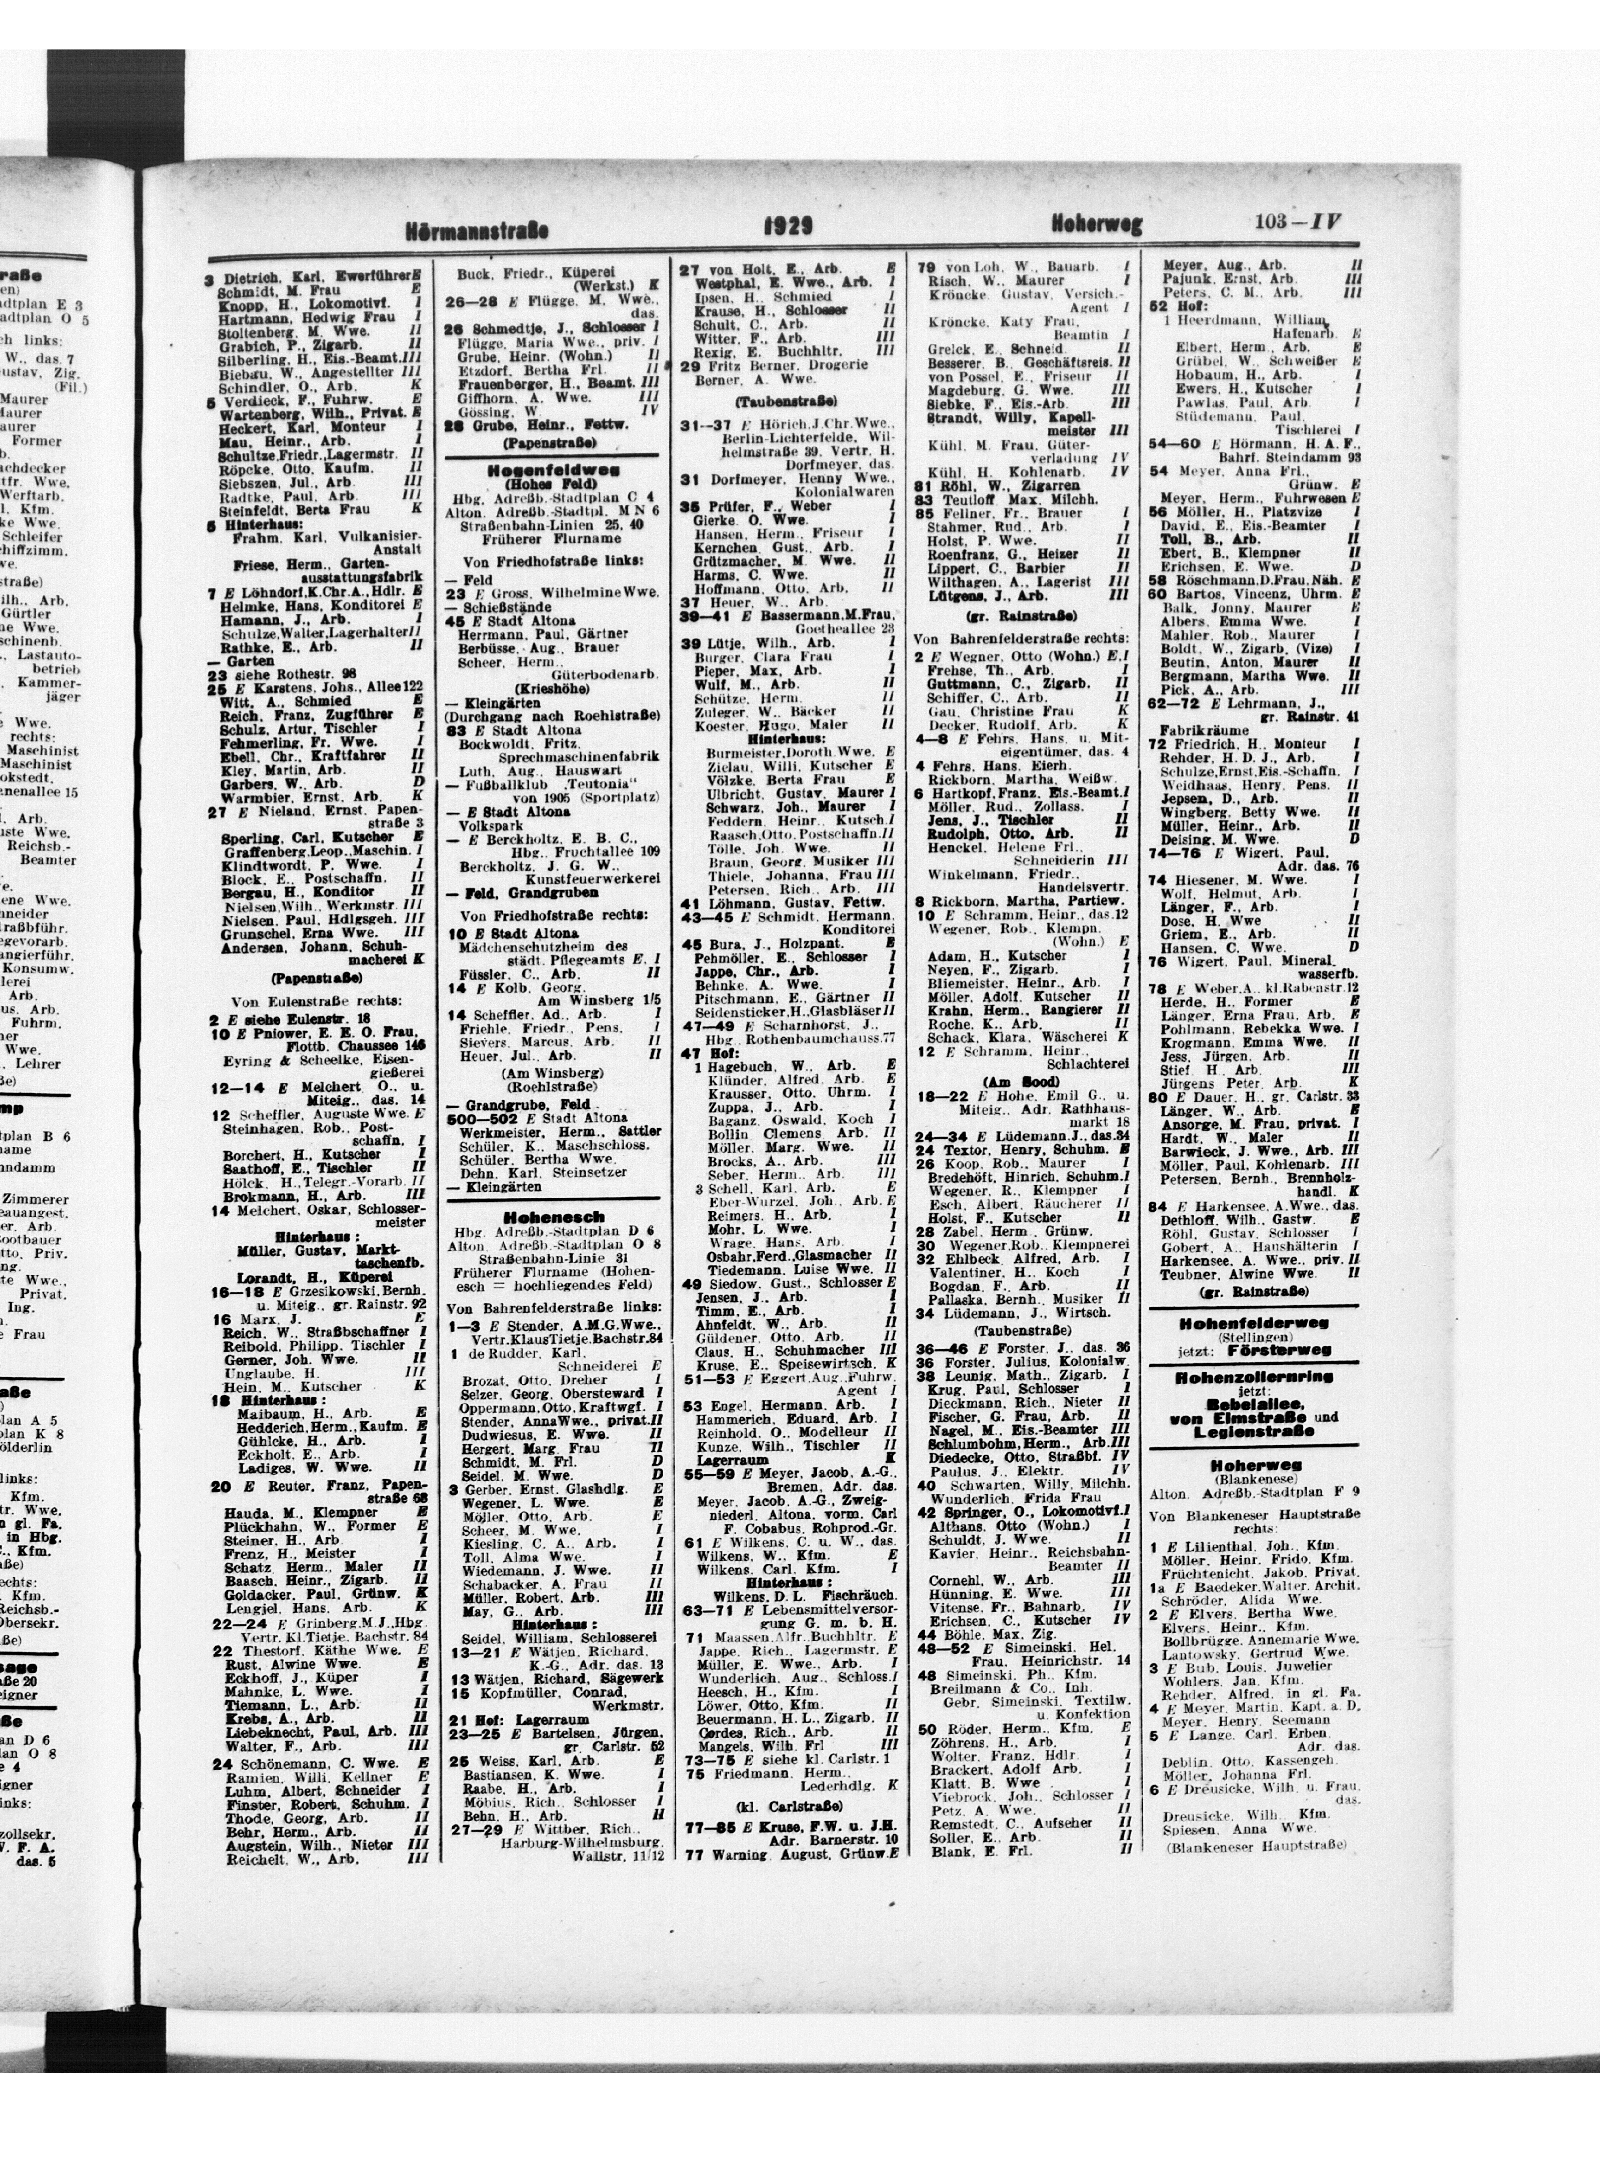 Hörmannstraße 1929 Hoherweg 103—IV
3 Dietrich, Karl, Ewerführer E
Schmidt, M. Frau E
Knopp, H., Lokomotivf. I
Hartmann, Hedwig Frau I
Stoltenberg, M. Wwe. II
Grabich, P., Zigarb. II
Silberling, H., Eis.-Beamt. III
Biebau, W., Angestellter III
Schindler, O., Arb. K
5 Verdieck, F., Fuhrw. E
Wartenberg, Wilh., Privat. E
Heckert, Karl, Monteur I
Mau, Heinr., Arb. I
Schultze, Friedr., Lagermstr. II
Röpcke, Otto, Kaufm. II
Siebszen, Jul., Arb. III
Radtke, Paul, Arb. III
Steinfeldt, Berta Frau K
5 Hinterhaus:
Frahm, Karl, Vulkanisier-
Anstalt
Friese, Herm., Garten-
ausstattungsfabrik
7 E Löhndorf, K. Chr. A., Hdlr. E
Helmke, Hans, Konditorei E
Hamann, J., Arb. I
Schulze, Walter, Lagerhalter II
Rathke, E., Arb. II
— Garten
23 siehe Rothestr. 98
25 E Karstens, Johs., Allee 122
Witt, A., Schmied E
Reich, Franz, Zugführer E
Schulz, Artur, Tischler I
Fehmerling, Fr. Wwe. I
Ebell, Chr., Kraftfahrer II
Kley, Martin, Arb. II
Garbers, W., Arb. D
Warmbier, Ernst, Arb. K
27 E Nieland, Ernst, Papen-
straße 3
Sperling, Carl, Kutscher E
Graffenberg, Leop., Maschin. I
Klindtwordt, P. Wwe. I
Block, E., Postschaffn. II
Bergau, H., Konditor II
Nielsen, Wilh., Werkmstr. III
Nielsen, Paul, Hdlgsgeh. III
Grunschel, Erna Wwe. III
Andersen, Johann, Schuh-
macherei K
(Papenstraße)
Von Eulenstraße rechts:
2 E siehe Eulenstr. 18
10 E Pniower, E. E. O. Frau,
Flottb. Chaussee 146
Eyring & Scheelke, Eisen-
gießerei
12—14 E Melchert, O., u.
Miteig., das. 14
12 Scheffler, Auguste Wwe. E
Steinhagen, Rob., Post-
schaffn. I
Borchert, H., Kutscher I
Saathoff, E., Tischler II
Hölck, H., Telegr.-Vorarb. II
Brokmann, H., Arb. III
14 Melchert, Oskar, Schlosser-
meister
Hinterhaus:
Müller, Gustav, Markt-
taschenfb.
Lorandt, H., Küperei
16—18 E Grzesikowski, Bernh.
u. Miteig., gr. Rainstr. 92
16 Marx, J. E
Reich, W., Straßbschaffner I
Reibold, Philipp, Tischler I
Gerner, Joh. Wwe. II
Unglaube, H. III
Hein, M., Kutscher K
18 Hinterhaus:
Maibaum, H., Arb. E
Hedderich, Herm., Kaufm. E
Gühlcke, H., Arb. I
Eckholt, E., Arb. I
Ladiges, W. Wwe. II
20 E Reuter, Franz, Papen-
straße 68
Hauda, M., Klempner E
Plückhahn, W., Former E
Steiner, H., Arb. I
Frenz, H., Meister I
Schatz, Herm., Maler II
Baasch, Heinr., Zigarb. II
Goldacker, Paul, Grünw. K
Lengjel, Hans, Arb. K
22—24 E Grinberg, M. J., Hbg.
Vertr. Kl. Tietje, Bachstr. 84
22 Thestorf, Käthe Wwe. E
Rust, Alwine Wwe. E
Eckhoff, J., Küper I
Mahnke, L. Wwe. I
Tiemann, L., Arb. II
Krebs, A., Arb. II
Liebeknecht, Paul, Arb. III
Walter, F., Arb. III
24 Schönemann, C. Wwe. E
Ramien, Willi, Kellner E
Luhm, Albert, Schneider I
Finster, Robert, Schuhm. I
Thode, Georg, Arb. II
Behr, Herm., Arb. II
Augstein, Wilh., Nieter III
Reichelt, W., Arb. III
Buck, Friedr., Küperei
(Werkst.) K
26—28 E Flügge, M. Wwe.,
das.
26 Schmedtje, J., Schlosser I
Flügge, Maria Wwe., priv. I
Grube, Heinr. (Wohn.) II
Etzdorf, Bertha Frl. II
Frauenberger, H., Beamt. III
Giffhorn, A. Wwe. III
Gössing, W. IV
28 Grube, Heinr., Fettw.
(Papenstraße)
Hogenfeldweg
(Hohes Feld)
Hbg. Adreßb.-Stadtplan C 4
Alton. Adreßb.-Stadtpl. M N 6
Straßenbahn-Linien 25, 40
Früherer Flurname
Von Friedhofstraße links:
— Feld
23 E Gross, Wilhelmine Wwe.
— Schießstände
45 E Stadt Altona
Herrmann, Paul, Gärtner
Berbüsse, Aug., Brauer
Scheer, Herm.,
Güterbodenarb.
(Krieshöhe)
— Kleingärten
(Durchgang nach Roehlstraße)
83 E Stadt Altona
Bockwoldt, Fritz,
Sprechmaschinenfabrik
Luth, Aug., Hauswart
— Fußballklub „Teutonia“
von 1905 (Sportplatz)
— E Stadt Altona
Volkspark
— E Berckholtz, E. B. C.,
Hbg., Fruchtallee 109
Berckholtz, J. G. W.,
Kunstfeuerwerkerei
— Feld, Grandgruben
Von Friedhofstraße rechts:
10 E Stadt Altona
Mädchenschutzheim des
städt. Pflegeamts E, I
Füssler, C., Arb. II
14 E Kolb, Georg,
Am Winsberg 1/5
14 Scheffler, Ad., Arb. I
Friehle, Friedr., Pens. I
Sievers, Marcus, Arb. II
Heuer, Jul., Arb. II
(Am Winsberg)
(Roehlstraße)
— Grandgrube, Feld
500—502 E Stadt Altona
Werkmeister, Herm., Sattler
Schüler, K., Maschschloss.
Schüler, Bertha Wwe.
Dehn, Karl, Steinsetzer
— Kleingärten
Hohenesch
Hbg. Adreßb.-Stadtplan D 6
Alton. Adreßb.-Stadtplan O 8
Straßenbahn-Linie 31
Früherer Flurname (Hohen-
esch = hochliegendes Feld)
Von Bahrenfelderstraße links:
1—3 E Stender, A.M.G. Wwe.,
Vertr. Klaus Tietje, Bachstr. 84
1 de Rudder, Karl,
Schneiderei E
Brozat, Otto, Dreher I
Selzer, Georg, Obersteward I
Oppermann, Otto, Kraftwgf. I
Stender, Anna Wwe., privat. II
Dudwiesus, E. Wwe. II
Hergert, Marg. Frau II
Schmidt, M. Frl. D
Seidel, M. Wwe. D
3 Gerber, Ernst, Glashdlg. E
Wegener, L. Wwe. E
Möller, Otto, Arb. E
Scheer, M. Wwe. I
Kiesling, C. A., Arb. I
Toll, Alma Wwe. I
Wiedemann, J. Wwe. II
Schabacker, A. Frau II
Müller, Robert, Arb. III
May, G., Arb. III
Hinterhaus:
Seidel, William, Schlosserei
13—21 E Wätjen, Richard,
K.-G., Adr. das. 13
13 Wätjen, Richard, Sägewerk
15 Kopfmüller, Conrad,
Werkmstr.
21 Hof: Lagerraum
23—25 E Bartelsen, Jürgen,
gr. Carlstr. 52
25 Weiss, Karl, Arb. E
Bastiansen, K. Wwe. I
Raabe, H., Arb. I
Möbius, Rich., Schlosser I
Behn, H., Arb. II
27—29 E Wittber, Rich.,
Harburg-Wilhelmsburg,
Wallstr. 11/12
27 von Holt, E., Arb. E
Westphal, E. Wwe., Arb. I
Ipsen, H., Schmied I
Krause, H., Schlosser II
Schult, C., Arb. II
Witter, F., Arb. III
Rexig, E. Buchhltr. III
29 Fritz Berner, Drogerie
Berner, A. Wwe.
(Taubenstraße)
31—37 E Hörich, J. Chr. Wwe.,
Berlin-Lichterfelde, Wil-
helmstraße 39, Vertr. H.
Dorfmeyer, das.
31 Dorfmeyer, Henny Wwe.,
Kolonialwaren
35 Prüfer, F., Weber I
Gierke, O. Wwe. I
Hansen, Herm., Friseur I
Kernchen, Gust., Arb. I
Grützmacher, M. Wwe. II
Harms, C. Wwe. II
Hoffmann, Otto, Arb. II
37 Heuer, W., Arb.
39—41 E Bassermann, M. Frau,
Goetheallee 23
39 Lütje, Wilh., Arb. I
Burger, Clara Frau I
Pieper, Max, Arb. I
Wulf, M., Arb. II
Schütze, Herm. II
Zuleger, W., Bäcker II
Koester, Hugo, Maler II
Hinterhaus:
Burmeister, Doroth. Wwe. E
Zielau, Willi, Kutscher E
Völzke, Berta Frau E
Ulbricht, Gustav, Maurer I
Schwarz, Joh., Maurer I
Feddern, Heinr., Kutsch. I
Raasch, Otto, Postschaffn. II
Tölle, Joh. Wwe. II
Braun, Georg, Musiker III
Thiele, Johanna, Frau III
Petersen, Rich., Arb. III
41 Löhmann, Gustav, Fettw.
43—45 E Schmidt, Hermann,
Konditorei
45 Bura, J., Holzpant. E
Pehmöller, E., Schlosser I
Jappe, Chr., Arb. I
Behnke, A. Wwe. I
Pitschmann, E., Gärtner II
Seidensticker, H., Glasbläser II
47—49 E Scharnhorst, J.,
Hbg., Rothenbaumchauss. 77
47 Hof:
1 Hagebuch, W., Arb. E
Klünder, Alfred, Arb. E
Krausser, Otto, Uhrm. I
Zuppa, J., Arb. I
Baganz, Oswald, Koch I
Bollin, Clemens, Arb. II
Möller, Marg. Wwe. II
Brocks, A., Arb. III
Seber, Herm., Arb. III
3 Schell, Karl, Arb. E
Eber-Wurzel, Joh., Arb. E
Reimers, H., Arb. I
Mohr, L. Wwe. I
Wrage, Hans, Arb. I
Osbahr, Ferd., Glasmacher II
Tiedemann, Luise Wwe. II
49 Siedow, Gust., Schlosser E
Jensen, J., Arb. I
Timm, E., Arb. I
Ahnfeldt, W., Arb. II
Güldener, Otto, Arb. II
Claus, H., Schuhmacher III
Kruse, E., Speisewirtsch. K
51—53 E Eggert, Aug., Fuhrw.
Agent I
53 Engel, Hermann, Arb. I
Hammerich, Eduard, Arb. I
Reinhold, O., Modelleur II
Kunze, Wilh., Tischler II
Lagerraum K
55—59 E Meyer, Jacob, A.-G.,
Bremen, Adr. das.
Meyer, Jacob, A.-G., Zweig-
niederl. Altona, vorm. Carl
F. Cobabus, Rohprod.-Gr.
61 E Wilkens, C. u. W., das.
Wilkens, W., Kfm. E
Wilkens, Carl, Kfm. I
Hinterhaus:
Wilkens, D. L., Fischräuch.
63—71 E Lebensmittelversor-
gung G. m. b. H.
71 Maassen, Alfr., Buchhltr. E
Jappe, Rich., Lagermstr. E
Müller, E. Wwe., Arb. I
Wunderlich, Aug., Schloss. I
Heesch, H., Kfm. I
Löwer, Otto, Kfm. II
Beuermann, H. L., Zigarb. II
Cordes, Rich., Arb. II
Mangels, Wilh. Frl. III
73—75 E siehe kl. Carlstr. 1
75 Friedmann, Herm.,
Lederhdlg. K
(kl. Carlstraße)
77—85 E Kruse, F.W. u. J.H.
Adr. Barnerstr. 10
77 Warning, August, Grünw. E
79 von Loh, W., Bauarb. I
Risch, W., Maurer I
Kröncke, Gustav, Versich.-
Agent I
Kröncke, Katy Frau,
Beamtin I
Grelck, E., Schneid. II
Besserer, B., Geschäftsreis. II
von Possel, E., Friseur II
Magdeburg, G. Wwe. III
Siebke, F., Eis.-Arb. III
Strandt, Willy, Kapell-
meister III
Kühl, M. Frau, Güter-
verladung IV
Kühl, H., Kohlenarb. IV
81 Röhl, W., Zigarren
83 Teutloff, Max, Milchh.
85 Fellner, Fr., Brauer I
Stahmer, Rud., Arb. I
Holst, P. Wwe. II
Roenfranz, G., Heizer II
Lippert, C., Barbier II
Wilthagen, A., Lagerist III
Lütgens, J., Arb. III
(gr. Rainstraße)
Von Bahrenfelderstraße rechts:
2 E Wegner, Otto (Wohn.) E, I
Frehse, Th., Arb. I
Guttmann, C., Zigarb. II
Schiffer, C., Arb. II
Gau, Christine Frau K
Decker, Rudolf, Arb. K
4—8 E Fehrs, Hans, u. Mit-
eigentümer, das. 4
4 Fehrs, Hans, Eierh.
Rickborn, Martha, Weißw.
6 Hartkopf, Franz, Eis.-Beamt. I
Möller, Rud., Zollass. I
Jens, J., Tischler II
Rudolph, Otto, Arb. II
Henckel, Helene Frl.,
Schneiderin III
Winkelmann, Friedr.,
Handelsvertr.
8 Rickborn, Martha, Partiew.
10 E Schramm, Heinr., das. 12
Wegener, Rob., Klempn.
(Wohn.) E
Adam, H., Kutscher I
Neyen, F., Zigarb. I
Bliemeister, Heinr., Arb. I
Möller, Adolf, Kutscher II
Krahn, Herm., Rangierer II
Roche, K., Arb. II
Schack, Klara, Wäscherei K
12 E Schramm, Heinr.,
Schlachterei
(Am Sood)
18—22 E Hohe, Emil G., u.
Miteig., Adr. Rathhaus-
markt 18
24—34 E Lüdemann, J., das. 34
24 Textor, Henry, Schuhm. E
26 Koop, Rob., Maurer I
Bredehöft, Hinrich, Schuhm. I
Wegener, R., Klempner I
Esch, Albert, Räucherer II
Holst, F., Kutscher II
28 Zabel, Herm., Grünw.
30 Wegener, Rob., Klempnerei
32 Ehlbeck, Alfred, Arb. I
Valentiner, H., Koch I
Bogdan, F., Arb. II
Pallaska, Bernh., Musiker II
34 Lüdemann, J., Wirtsch.
(Taubenstraße)
36—46 E Forster, J., das. 36
36 Forster, Julius, Kolonialw.
38 Leunig, Math., Zigarb. I
Krug, Paul, Schlosser I
Dieckmann, Rich., Nieter II
Fischer, G. Frau, Arb. II
Nagel, M., Eis.-Beamter III
Schlumbohm, Herm., Arb. III
Diedecke, Otto, Straßbf. IV
Paulus, J., Elektr. IV
40 Schwarten, Willy, Milchh.
Wunderlich, Frida Frau
42 Springer, O., Lokomotivf. I
Althans, Otto (Wohn.) I
Schuldt, J. Wwe. II
Kavier, Heinr., Reichsbahn-
Beamter II
Cornehl, W., Arb. III
Hünning, E. Wwe. III
Vitense, Fr., Bahnarb. IV
Erichsen, C., Kutscher IV
44 Böhle, Max, Zig.
48—52 E Simeinski, Hel.
Frau, Heinrichstr. 14
48 Simeinski, Ph., Kfm.
Breilmann & Co., Inh.
Gebr. Simeinski, Textilw.
u. Konfektion
50 Röder, Herm., Kfm. E
Zöhrens, H., Arb. I
Wolter, Franz, Hdlr. I
Brackert, Adolf, Arb. I
Klatt, B. Wwe. I
Viebrock, Joh., Schlosser I
Petz, A. Wwe. II
Remstedt, C., Aufseher II
Soller, E., Arb. II
Blank, E. Frl. II
Meyer, Aug., Arb. II
Pajunk, Ernst, Arb. III
Peters, C. M., Arb. III
52 Hof:
1 Heerdmann, William,
Hafenarb. E
Elbert, Herm., Arb. E
Grübel, W., Schweißer E
Hobaum, H., Arb. I
Ewers, H., Kutscher I
Pawlas, Paul, Arb. I
Stüdemann, Paul,
Tischlerei I
54—60 E Hörmann, H. A. F.,
Bahrf. Steindamm 93
54 Meyer, Anna Frl.,
Grünw. E
Meyer, Herm., Fuhrwesen E
56 Möller, H., Platzvize I
David, E., Eis.-Beamter I
Toll, B., Arb. II
Ebert, B., Klempner II
Erichsen, E. Wwe. D
58 Röschmann, D. Frau, Näh. E
60 Bartos, Vincenz, Uhrm. E
Balk, Jonny, Maurer E
Albers, Emma Wwe. I
Mahler, Rob., Maurer I
Boldt, W., Zigarb. (Vize) I
Beutin, Anton, Maurer II
Bergmann, Martha Wwe. II
Pick, A., Arb. III
62—72 E Lehrmann, J.,
gr. Rainstr. 41
Fabrikräume
72 Friedrich, H., Monteur I
Rehder, H. D. J., Arb. I
Schulze, Ernst, Eis.-Schaffn. I
Weidhaas, Henry, Pens. II
Jepsen, D., Arb. II
Wingberg, Betty Wwe. II
Müller, Heinr., Arb. II
Deising, M. Wwe. D
74—76 E Wigert, Paul,
Adr. das. 76
74 Hiesener, M. Wwe. I
Wolf, Helmut, Arb. I
Länger, F., Arb. I
Dose, H. Wwe II
Griem, E., Arb. II
Hansen, C. Wwe. D
76 Wigert, Paul, Mineral-
wasserfb.
78 E Weber, A., kl. Rabenstr. 12
Herde, H., Former E
Länger, Erna Frau, Arb. E
Pohlmann, Rebekka Wwe. I
Krogmann, Emma Wwe. II
Jess, Jürgen, Arb. II
Stief, H., Arb. III
Jürgens, Peter, Arb. K
80 E Dauer, H., gr. Carlstr. 33
Länger, W., Arb. E
Ansorge, M. Frau, privat. I
Hardt, W., Maler II
Barwieck, J. Wwe., Arb. III
Möller, Paul, Kohlenarb. III
Petersen, Bernh., Brennholz-
handl. K
84 E Harkensee, A. Wwe., das.
Dethloff, Wilh., Gastw. E
Röhl, Gustav, Schlosser I
Gobert, A., Haushälterin I
Harkensee, A. Wwe., priv. II
Teubner, Alwine Wwe. II
(gr. Rainstraße)
Hohenfelderweg
(Stellingen)
jetzt: Försterweg
Hohenzollernring
jetzt:
Bebelallee,
von Elmstraße und
Legienstraße
Hoherweg
(Blankenese)
Alton. Adreßb.-Stadtplan F 9
Von Blankeneser Hauptstraße
rechts:
1 E Lilienthal, Joh., Kfm.
Möller, Heinr. Frido, Kfm.
Früchtenicht, Jakob, Privat.
1a E Baedeker, Walter, Archit.
Schröder, Alida Wwe.
2 E Elvers, Bertha Wwe.
Elvers, Heinr., Kfm.
Bollbrügge, Annemarie Wwe.
Lantowsky, Gertrud Wwe.
3 E Bub, Louis, Juwelier
Wohlers, Jan, Kfm.
Rehder, Alfred, in gl. Fa.
4 E Meyer, Martin, Kapt. a. D.
Meyer, Henry, Seemann
5 E Lange, Carl, Erben,
Adr. das.
Deblin, Otto, Kassengeh.
Möller, Johanna Frl.
6 E Dreusicke, Wilh. u. Frau,
das.
Dreusicke, Wilh., Kfm.
Spiesen, Anna Wwe.
(Blankeneser Hauptstraße)